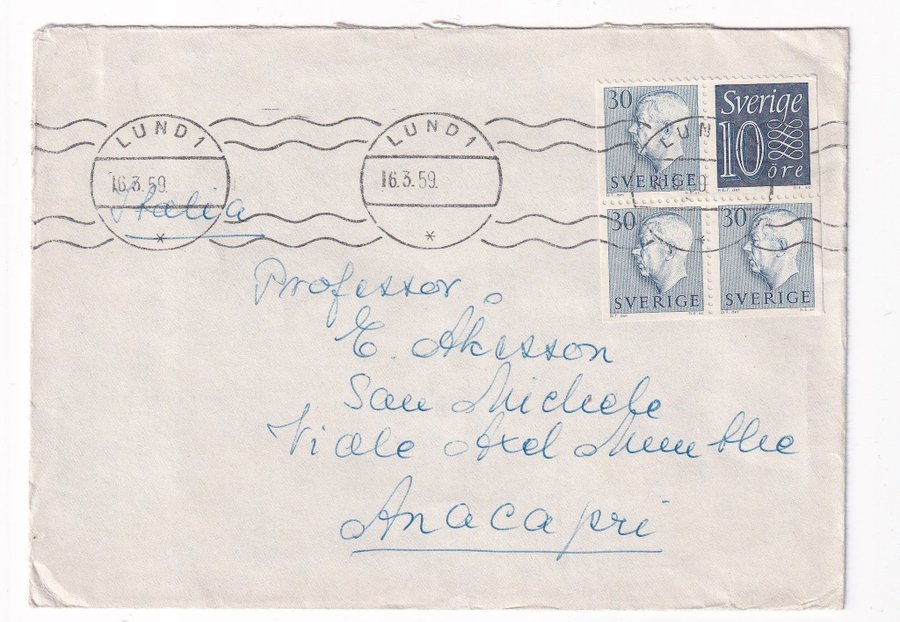 LUND 1
16.3.59.
*
LUND 1
16.3.59.
*
30
SVERIGE
Sverige
10
öre
LUN
30
SVERIGE
30
SVERIGE
Italia
Professor
E. Åkesson
San Michele
Viale Axel Munthe
Anacapri